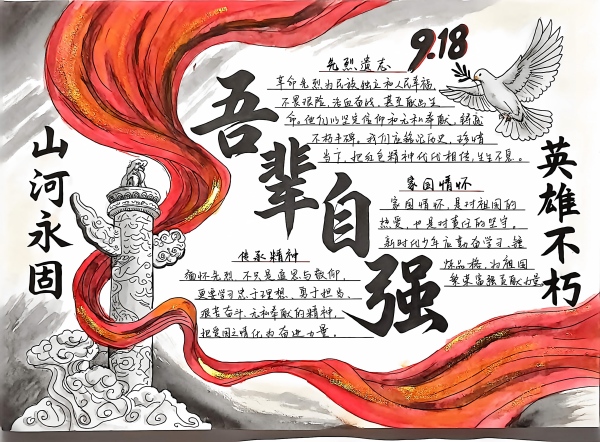 9.18
吾辈自强
山河永固
英雄不朽
先烈遗志
革命先烈为民族独立和人民幸福,
不畏艰险、浴血奋战,甚至献出生
命。他们以坚定信仰和无私奉献,铸就
不朽丰碑。我们应铭记历史、珍惜
当下,把红色精神代代相传,生生不息。
家国情怀
家国情怀,是对祖国的
热爱,也是对责任的坚守。
新时代少年应勤奋学习、锤
炼品格,为祖国
繁荣富强贡献力量
传承精神
缅怀先烈,不只是追思与敬仰,
更要学习忠于理想、勇于担当、
艰苦奋斗、无私奉献的精神,
把爱国之情化为奋进力量。